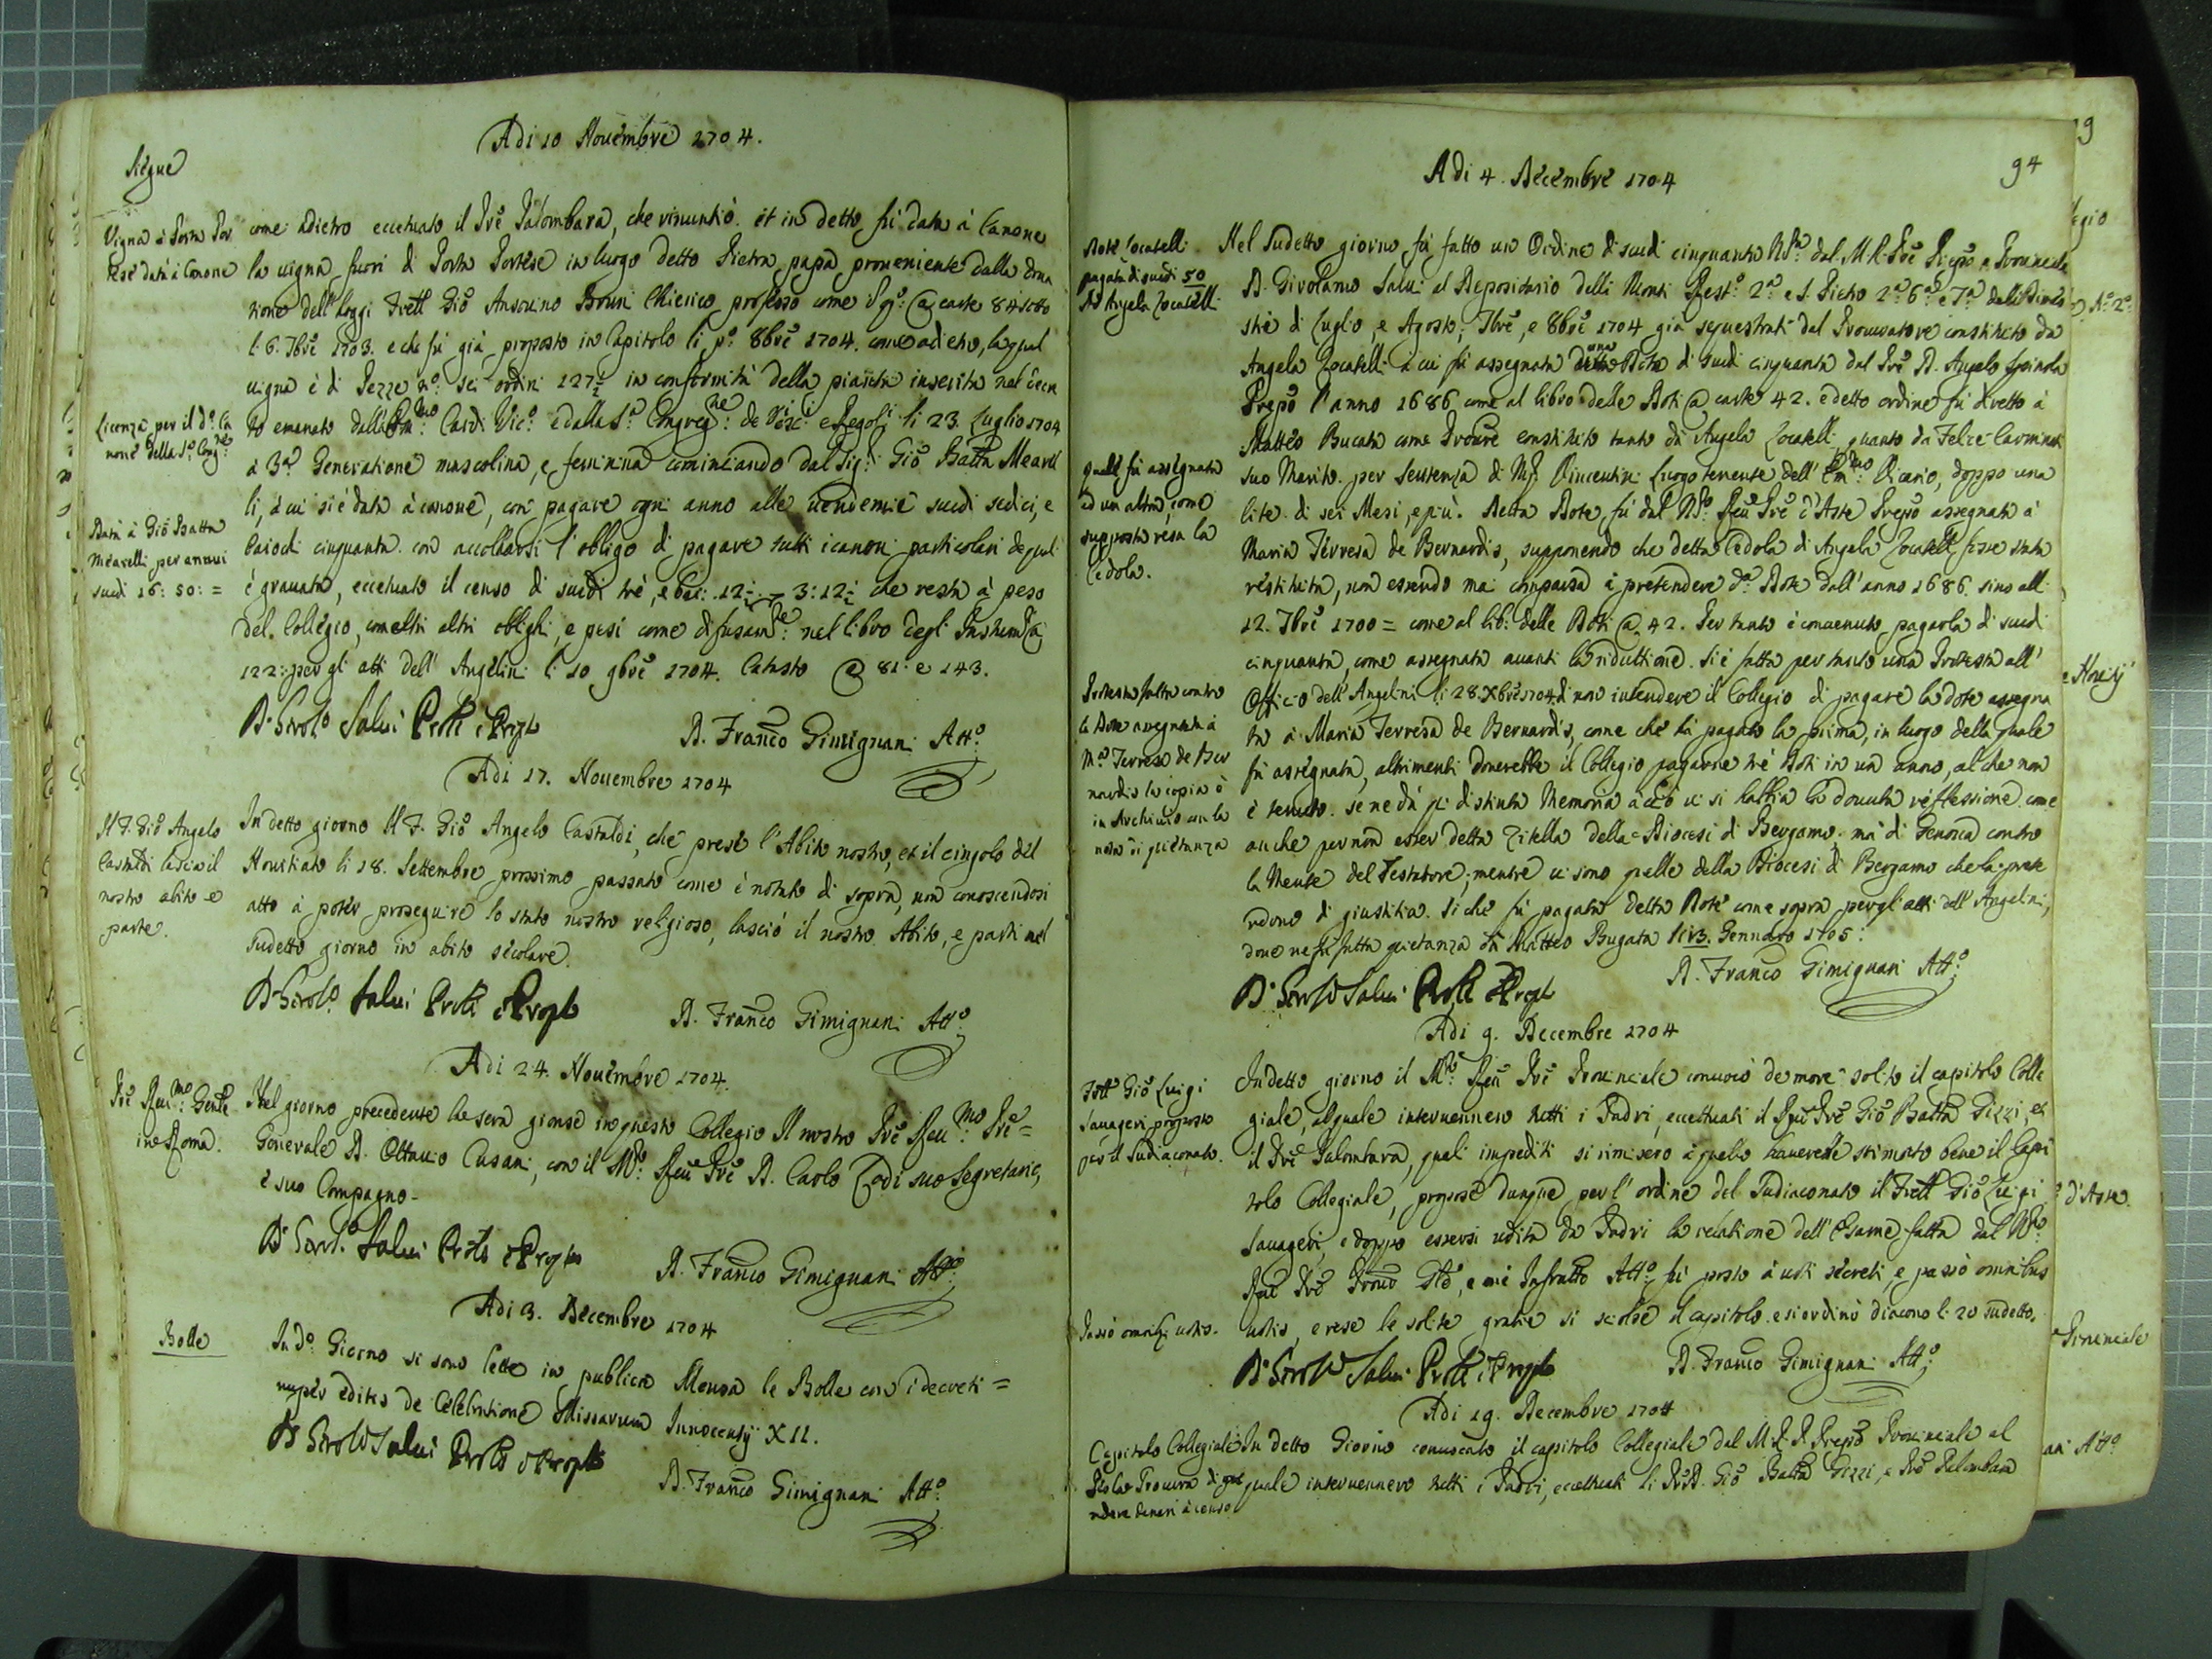 Adi 10 Nouembre 1704.
Siegue
Vigna à Porta Por
tese data à Canone
come adietro eccettuato il Prē Palombara, che rinuntiò. et in detto fù data à Canone
la uigna fuori di Porta Portese in luogo detto Pietra papa proueniente dalla dona
tione dell' hoggi Frēll Giō Ansouino Bruni Chierico professo come @ carte 84 sotto
li 6. 7brē 1703. e che fù già proposto in Capitolo li po: 8brē 1704. come adietro, la qual
uigna è di Pezze no: sei ordini 127½ in conformità della pianta inserita nel decre
Licenza per il do: Ca
none della Sa: Congne:
to emanato dall' Emmo: Card: Vico: e dalla Sa: Congregne: de Vesci: e Regoli: li 23. Luglio 1704
à 3a: Generatione mascolina, e feminina cominciando dal Sig:r Giō Batta Mearel
li, à cui si è data à canone, con pagare ogni anno alle uendemie scudi sedici, e
Data à Giō Batta
Mearelli per annui
scudi 16: 50: =
baiochi cinquanta con accollarsi l'obligo di pagare tutti i canoni particolari de quali
è grauata, eccettuato il censo di scudi trè, e bai: 12½ 3:12½ che resta à peso
del Collegio, con altri oblighi, e pesi come difusamte: nel libro degli
122: per gli atti dell' Angelini li 10 9brē 1704. Catasto @ 81. e 143.
D. Girolo Salui Prole e Prepto
D. Franco Gimignani Atto:
Adi 17. Nouembre 1704
Il F. Giō Angelo
Castaldi lascia il
nostro abito e
parte.
In detto giorno Il F. Giō Angelo Castaldi, che prese l'Abito nostro, et il cingolo del
Nouitiato li 18. Settembre prossimo passato come è notato di sopra, non conoscendosi
atto à poter proseguire lo stato nostro religioso, lasciò il nostro Abito, e partì nel
sudetto giorno in abito secolare.
D. Girolo Salui Prole e Prepto
D. Franco Gimignani Atto:
Adi 24. Nouembre 1704.
Prē Reumo: Genle
in Roma.
Nel giorno precedente la sera gionse in questo Collegio Il nostro Prē Reumo: Prē =
Generale D. Ottauio Cusani, con il Mo: Reu Prē D. Carlo Lodi suo Segretario,
e suo Compagno.
D. Girolo Salui Prole e Prepto
D. Franco Gimignani Atto:
Adi 3. Decembre 1704
Bolle
In do: Giorno si sono lette in publica Mensa le Bolle con i decreti =
nuper editis de Celebratione Missarum Innocentij XII.
D. Girolo Salui Prole e Prepto
D. Franco Gimignani Atto:
94
Adi 4. Decembre 1704
Dote Locatelli
pagata di scudi 50
Ad Angela Locatelli
Nel sudetto giorno fù fatto un Ordine di scudi cinquanta dal M. R. Prē Prepō e Prouinciale
D. Girolamo Salui al Depositario delli Monti Resto: 2a: e S. Pietro 2a: 6a: e 7a: delli Bimes
stri di Luglio, e Agosto, 7brē, e 8brē 1704 già sequestrati dal Procuratore constituito da
Angela Locatelli à cui fù assegnata una Dote di scudi cinquanta dal Prē D. Angelo Spinola
Prepō l'anno 1686 come al libro delle Doti @ carte 42. e detto ordine fù diretto à
Matteo Bucata come Procure constituito tanto da Angela Locatelli, quanto da Felice Carminati
quale fù assegnata
ad un altra, come
supposta resa la
Cedola.
suo Marito. per sentenza di M: Vincentini Luogotenente dell' Emmo: Vicario, doppo una
lite di sei Mesi, e più. Detta Dote fù dal Mo: Reu Prē d'Aste Prepō assegnata à
Maria Terresa de Bernardis, supponendo che detta Cedola di Angela Locatelli fosse stata
restituita, non essendo mai comparsa à pretendere da: Dote dall'anno 1686. sino alli
12. 7brē 1700 = come al lib: delle Doti @ 42. Per tanto è conuenuto pagarla di scudi
cinquanta, come assegnata auanti la riduttione. Si è fatta per tanto una Protesta all'
Protesta fatta contro
la Dote assegnata à
Ma: Terresa de Ber
nardis la copia è
in Archiuio con la
nota di quietanza
Officio dell'Angelini li 28. Xbrē 1704 di non intendere il Collegio di pagare la dote assegna
ta à Maria Terresa de Bernardis, come che hà pagato la prima, in luogo della quale
fù assegnata, altrimenti douerebbe il Collegio pagarne trè Doti in un anno, al che non
è tenuto. se ne dà quì distinta Memoria acciò ui si habbia la douuta reflessione. come
anche per non esser detta Zitella della Diocesi di Bergamo, mà di Genoua contro
la Mente del Testatore; mentre ui sono quelle della Diocesi di Bergamo che la prete
ndono di giustitia. Si che fù pagata detta Dote come sopra per gl'atti dell'Angelini,
doue ne fù fatta quietanza da Matteo Bugata li 13. Gennaro 1705.
D. Girolo Salui Prole e Prepto
D. Franco Gimignani Atto:
Adi 9. Decembre 1704
Frēll Giō Luigi
Sauageri proposto
per il Sudiaconato.
In detto giorno il Mo: Reu Prē Prouinciale conuocò de more solito il capitolo Colle
giale, al quale interuennero tutti i Padri, eccettuati il Reu Prē Giō Batta Gizzi, et
il Prē Palombara, quali impediti si rimisero à quello hauerebbe stimato bene il Capi
tolo Collegiale, propose dunque per l'ordine del Sudiaconato il Frēll Giō Luigi
Sauageri, e doppo essersi udita da Padri la relatione dell'Esame fatta dal Mo:
Reu Prē Prouo, e me Infratto Atto: fù posto à uoti secreti, e passò omnibus
Passò omnibus uotis.
uotis, e rese le solite gratie si sciolse il capitolo. e si ordinò diacono li 20 sudetto.
D. Girolo Salui Prole e Prepto
D. Franco Gimignani Atto:
Adi 19. Decembre 1704
Capitolo Collegiale
Procura di pre
ndere denari à censo
In detto Giorno conuocato il capitolo Collegiale dal M. R. P. Prepō Prouinciale al
quale interuennero tutti i Padri, eccettuati li Prē D. Giō Batta Gizzi, e Prē Palombara